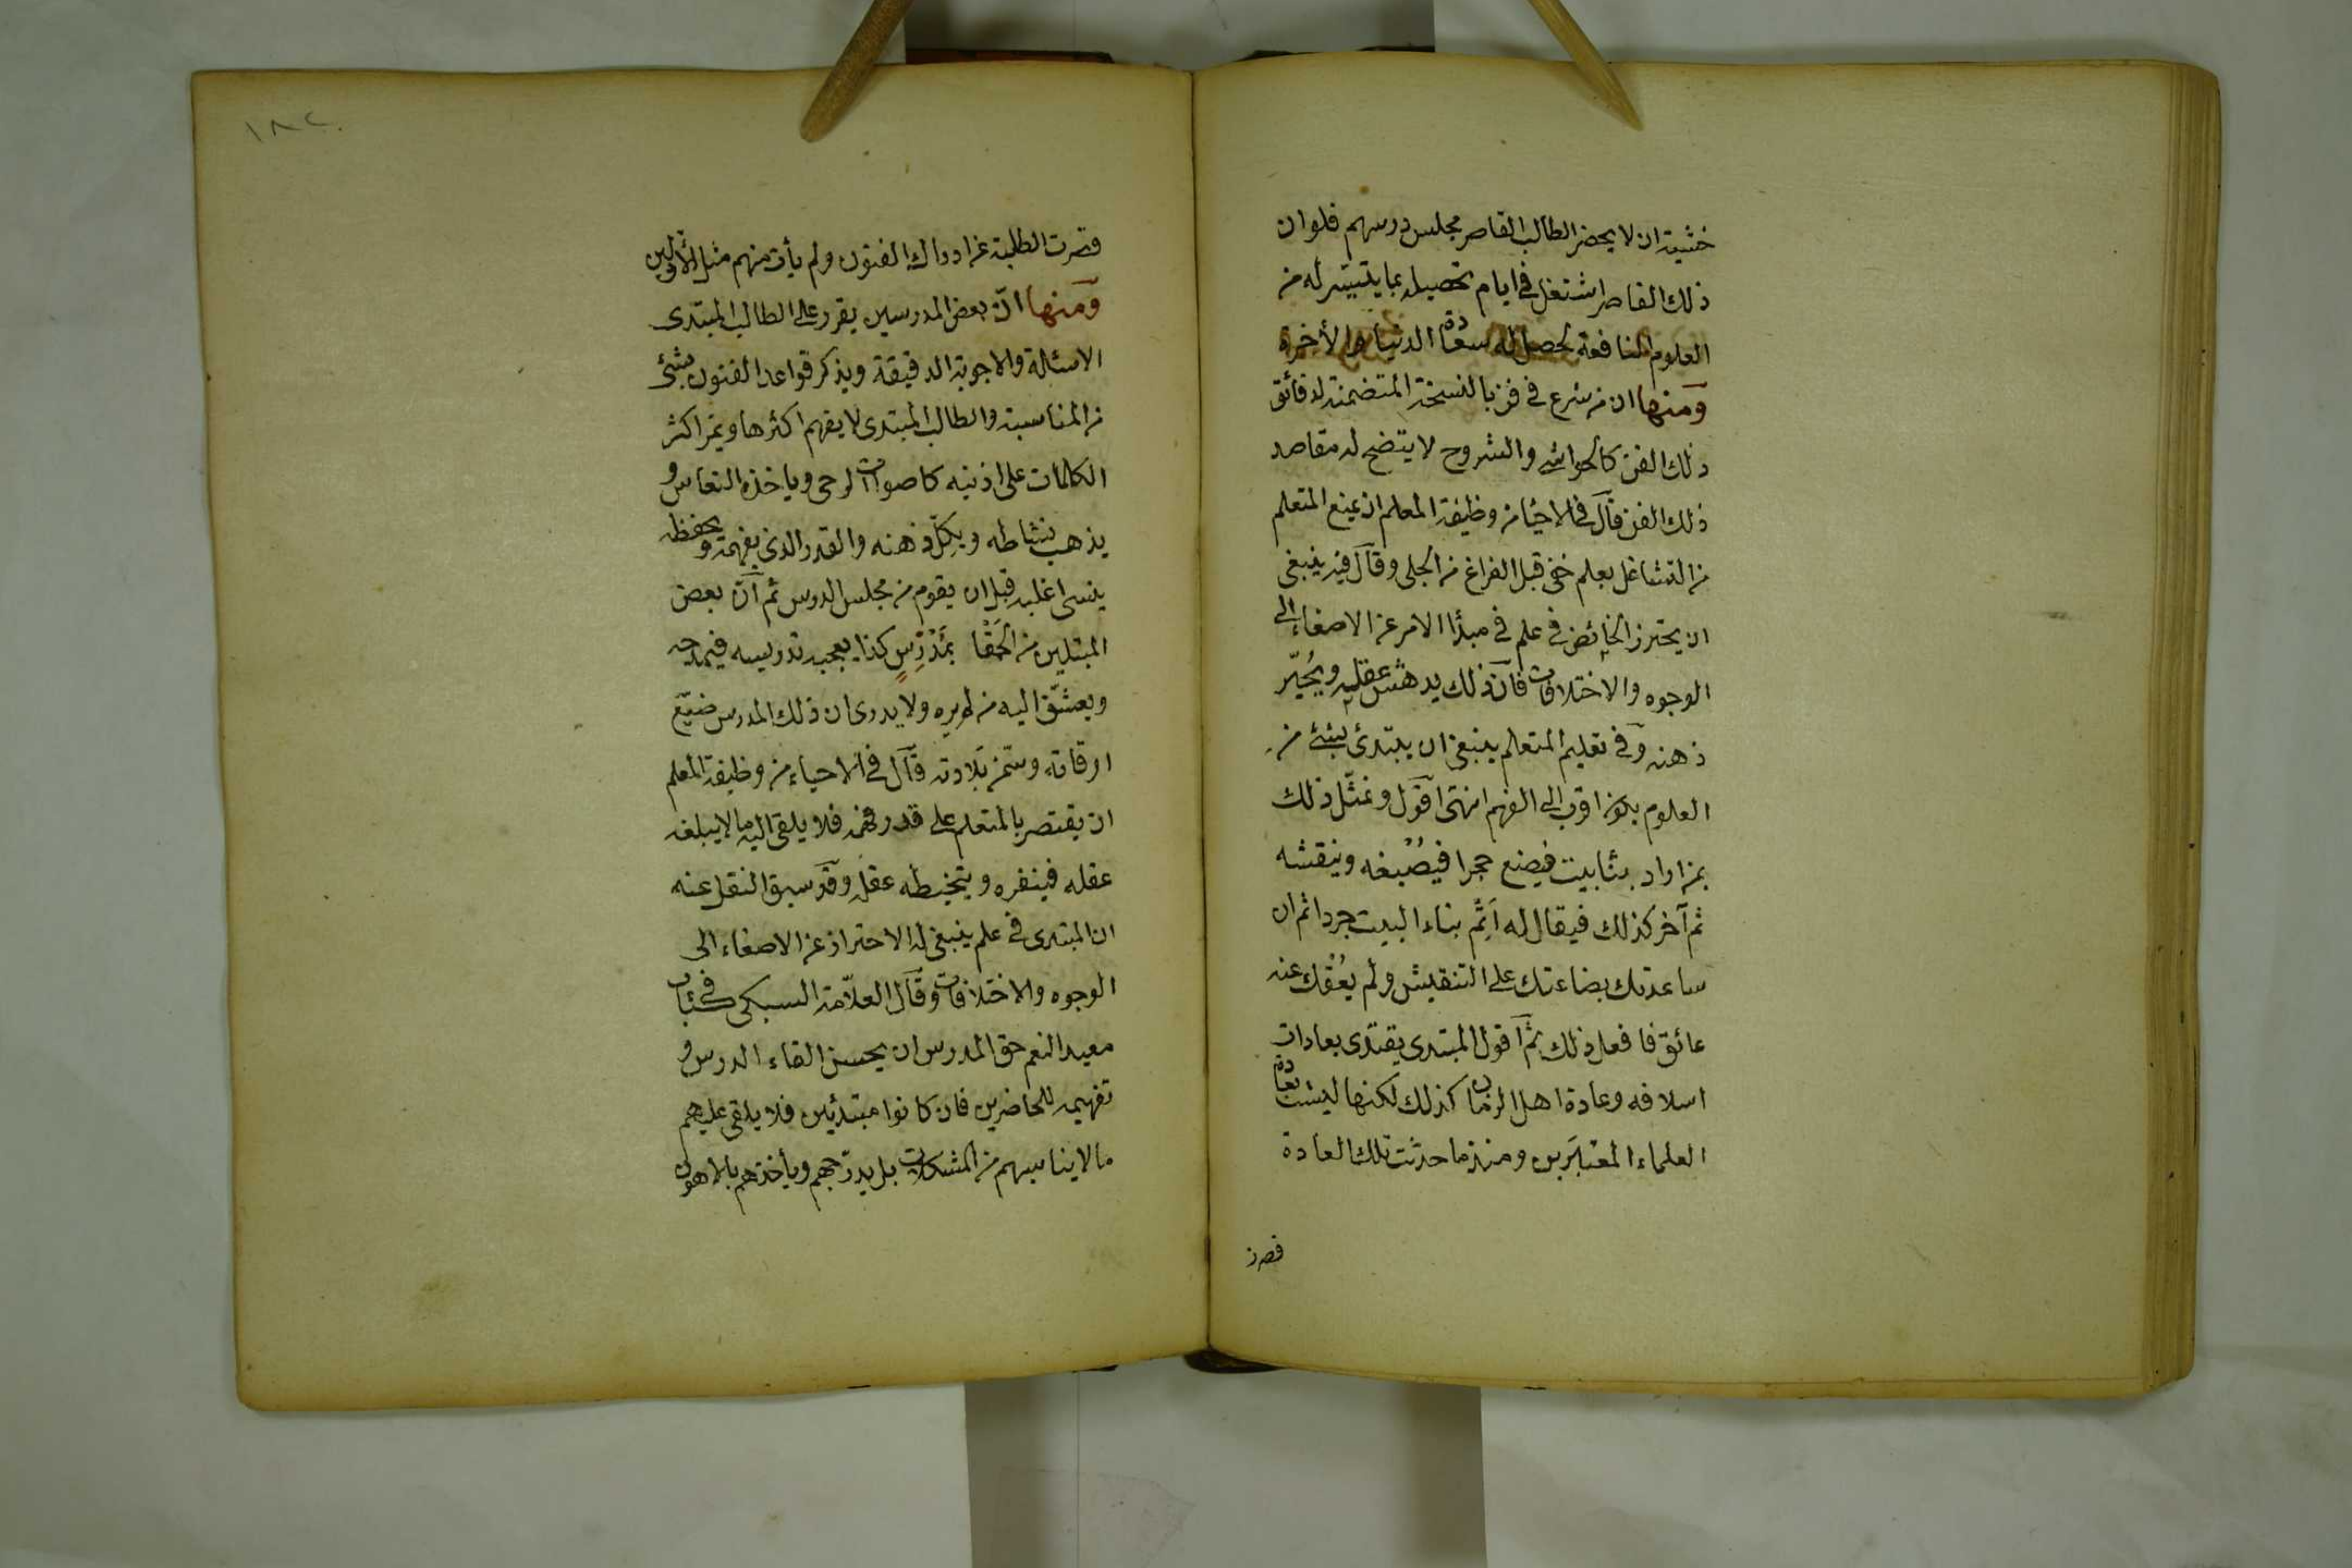 خشية ان لا يحضر الطالب القاصر مجلس درسهم فلو ان
ذلك القاصر اشتغل في ايام تحصيله بما يتيسر له من
العلوم النافعة لحصل له سعادة الدنيا والأخرة
ومنها ان من شرع في فن بالنسخة المتضمنة لدقائق
ذلك الفن كالحواشي والشروح لا يتضح له مقاصد
ذلك الفن قال في الاحيا من وظيفة المعلم ان يمنع المتعلم
من التشاغل بعلم خفي قبل الفراغ من الجلي وقال فيه ينبغي
ان يحترز الخائض في علم في مبدأ الامر عن الاصغاء الى
الوجوه والاختلافات فان ذلك يدهش عقله ويُحيّر
ذهنه وفي تعليم المتعلم ينبغي ان يبتدئ بشئ من
العلوم يكون اقرب الى الفهم انتهى اقول ونمثّل ذلك
بمن اراد بناء بيت فيضع حجرا فيصْبُغه وينقشه
ثم آخر كذلك فيقال له اَتِمّ بناء البيت جردا ثم ان
ساعدتك بضاعتك على التنقيش ولم يعُقْك عنه
عائق فافعل ذلك ثم اقول المبتدى يقتدى بعادات
اسلافه وعادة اهل الزمان كذلك لكنها ليست بعادة
العلماء المعتبَرين ومنذ ما حدثت تلك العادة
قصرت
١٨٢
قصرت الطلبة عن ادراك الفنون ولم يأت منهم مثل الأولين
ومنها انّ بعض المدرسين يقرر على الطالب المبتدى
الاسئلة والاجوبة الدقيقة ويذكر قواعد الفنون بشئ
من المناسبة والطالب المبتدى لا يفهم اكثرها ويمر اكثر
الكلمات على اذنيه كاصوات الرحى وياخذه النعاس و
يذهب نشاطه ويكِلّ ذهنه والقدر الذي يفهمه ويحفظه
ينسى اغلبه قبل ان يقوم من مجلس الدرس ثم انّ بعض
المبتلين من الحَمْقا بمُدَرِّسٍ كذا يعجبه تدريسه فيمدحه
ويعشّق اليه من لم يره ولا يدرى ان ذلك المدرس ضيّع
اوقاته وسخر بلادته قال في الاحياء من وظيفة المعلم
ان يقتصر بالمتعلم على قدر فهمه فلا يلقى اليه ما لا يبلغه
عقله فينفره ويتخبطه عقله وقد سبق النقل عنه
ان المبتدى في علم ينبغي له الاحتراز عن الاصغاء الى
الوجوه والاختلافات وقال العلاّمة السبكى في كتاب
معيد النعم حق المدرس ان يحسن القاء الدرس و
تفهيمه للحاضرين فان كانوا مبتدئين فلا يلقى عليهم
مالا يناسبهم من المشكلات بل يدرّجهم ويأخذهم بالاهون